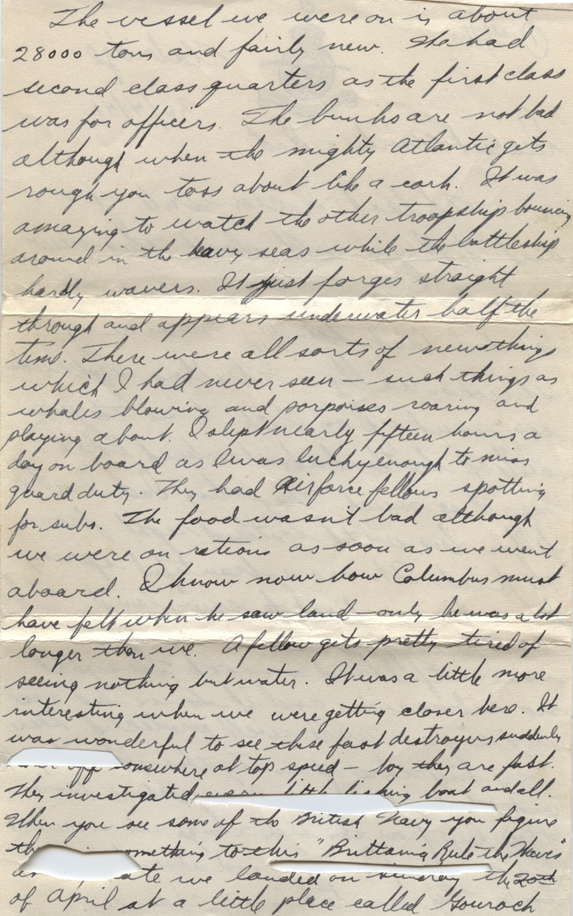 The vessel we were on is about
28000 tons and fairly new. We had
second class quarters as the first class
was for officers. The bunks are not bad
although when the mighty Atlantic gets
rough you toss about like a cork. It was
amazing to watch the other troopship bouncing
around in the heavy seas while the battleship
hardly wavers. It just forges straight
through and appears underwater half the
time. There were all sorts of new things
which I had never seen – such things as
whales blowing and porpoises roaring and
playing about. I slept nearly fifteen hours a
day on board as I was lucky enough to miss
guard duty. They had Airforce fellows spotting
for subs. The food wasn't bad although
we were on rations as soon as we went
aboard. I know now how Columbus must
have felt when he saw land – only he was a lot
longer than we. A fellow gets pretty tired of
seeing nothing but water. It was a little more
interesting when we were getting closer here. It
was wonderful to see these fast destroyers suddenly
off somewhere at top speed – boy they are fast.
They investigated every little fishing boat and all.
When you see some of the British Navy you figure
something to this "Brittania Rule the Waves"
we landed on the 20th
of April at a little place called "Gourock